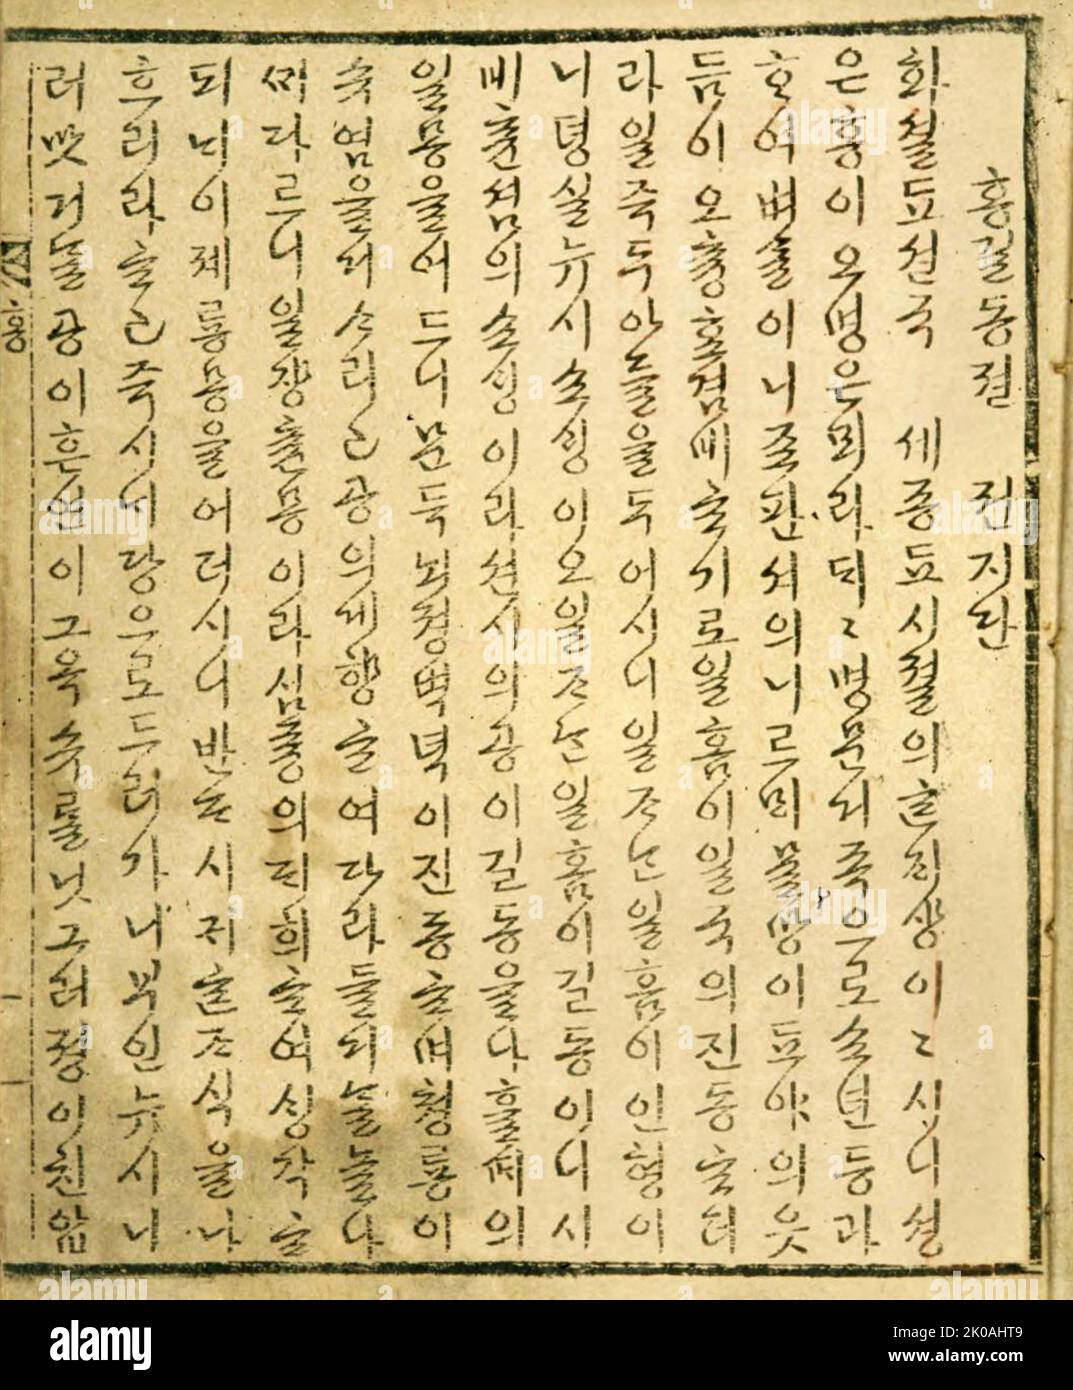 홍길동젼 권지단
화셜됴션국 세종됴시졀의ᄒᆞᆫᄌᆡ샹이〻시니셩
은홍이오명은뫼라ᄃᆡ〻명문거죡으로쇼년등과
ᄒᆞ여벼슬이니죠판셔의니르ᄆᆡ물망이됴야의읏
듬이오츙효겸비ᄒᆞ기로일홈이일국의진동ᄒᆞ더
라일즉두아들을두어시니일ᄌᆞᄂᆞᆫ일홈이인형이
니뎡실뉴시소ᄉᆡᆼ이오일ᄌᆞᄂᆞᆫ일홈이길동이니시
비츈셤의소ᄉᆡᆼ이라션시의공이길동을나흘ᄯᆡ의
일몽을어드니문득뇌졍벽녁이진동ᄒᆞ며쳥룡이
슈염을거ᄉᆞ리고공의게향ᄒᆞ여다라들거ᄂᆞᆯ놀나
ᄭᆡ다르니일쟝츈몽이라심즁의ᄃᆡ희ᄒᆞ여ᄉᆡᆼ각ᄒᆞ
되ᄂᆡ이제룡몽을어더시니반ᄃᆞ시귀ᄒᆞᆫᄌᆞ식을나
흐리라ᄒᆞ고즉시ᄂᆡ당으로드러가니부인뉴시니
러맛거ᄂᆞᆯ공이흔연이그옥슈를닛그러졍이친압
홍
alamy
Image ID: 2K0AHT9
www.alamy.com